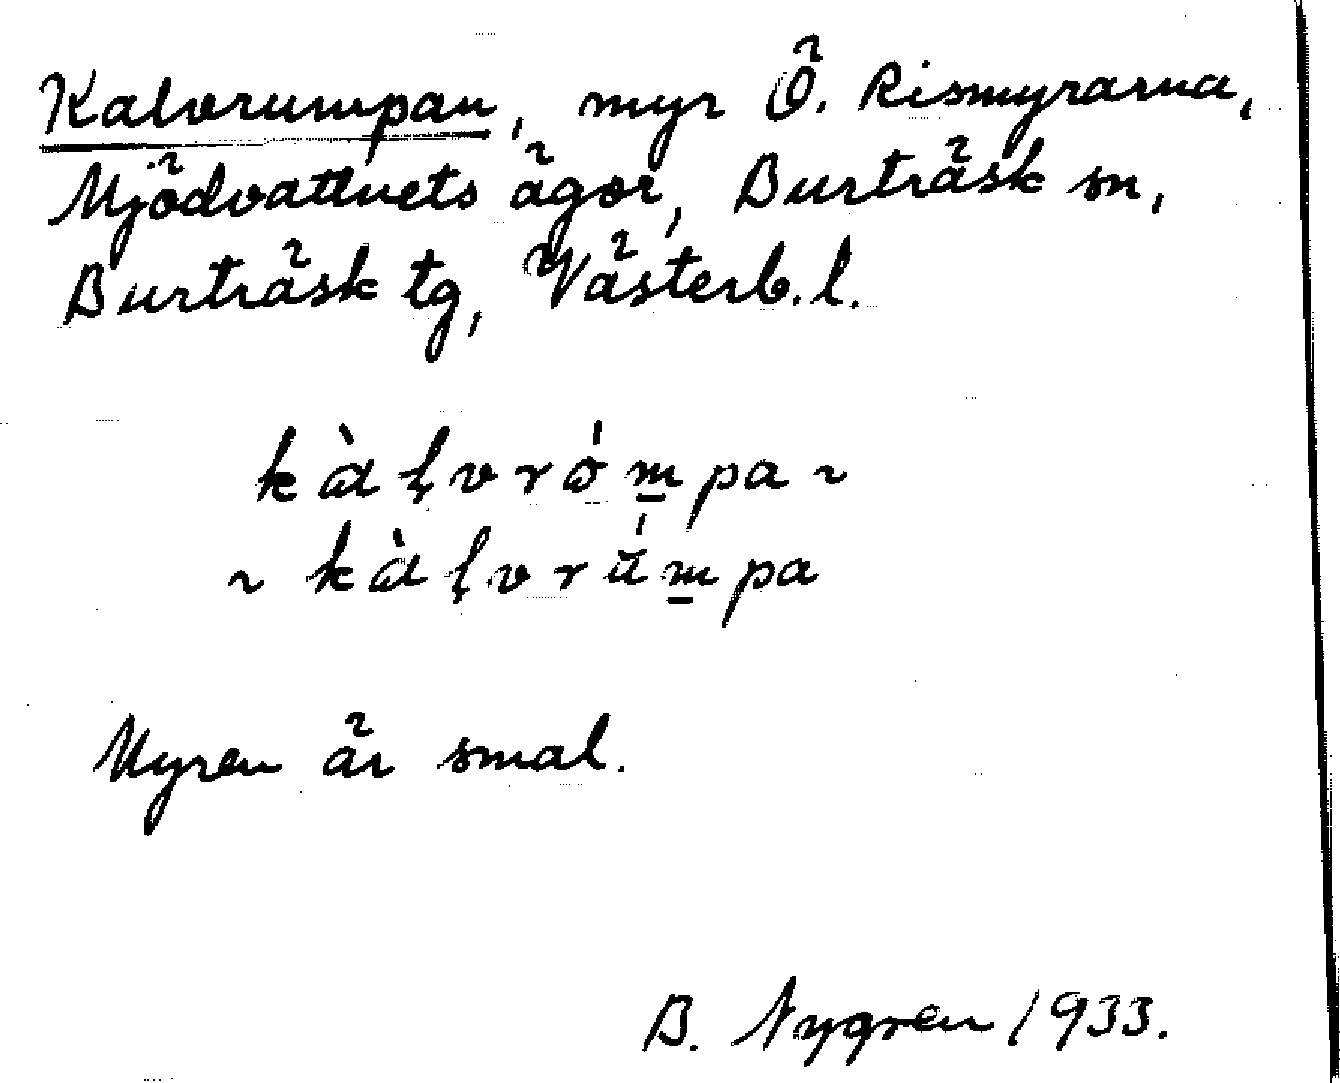 Kalvrumpan, myr Ö. Rismyrarna,
Mjödvattnets ägor, Burträsk sn,
Burträsk tg, Västerb. l.
kàḷvrómpa ~
~ kàḷvrúmpa
Myren är smal.
B. Nygren 1933.